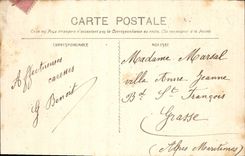 CARTE POSTALE
CORRESPONDANCE
ADRESSE
Affectueuses
caresses
G Benoit
Madame Marsal
villa Anne-Jeanne
Bd St François
Grasse
(Alpes Maritimes)